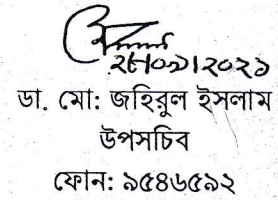 ২৮।০৯।২০২১
ডা. মো: জহিরুল ইসলাম
উপসচিব
ফোন: ৯৫৪৬৫৯২